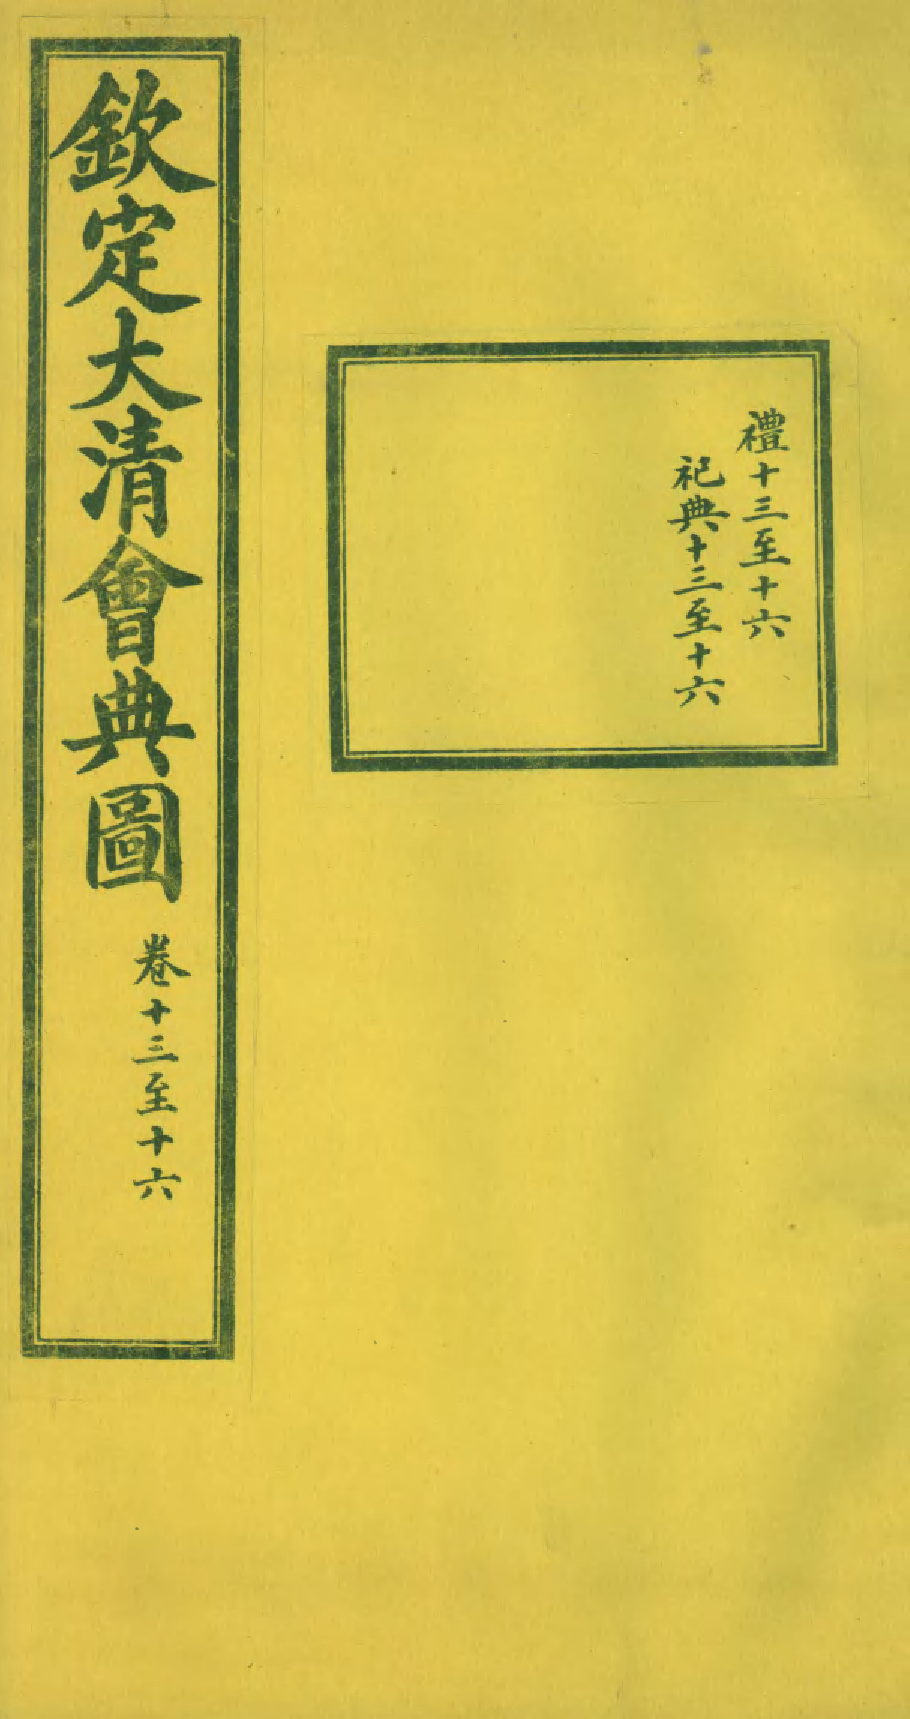 禮十三至十六
祀典十三至十六
欽定大清會典圖
卷十三至十六